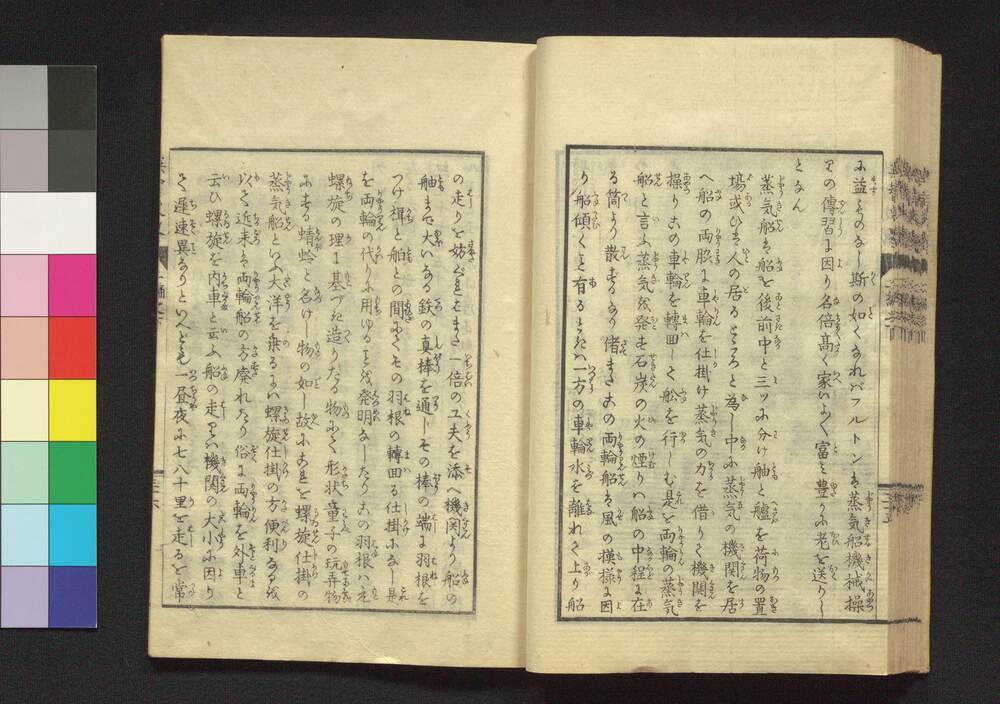 に益するのなし斯の如くなれバフルトンは蒸気船機械操
りの傳習に因り名倍高く家いよ〳〵富ミ豊かに老を送りし
となん
蒸気船は船を後前中と三ツに分け舳と艫を荷物の置
場或ひは人の居るところと為し中に蒸気の機関を居
へ船の両脇に車輪を仕掛け蒸気の力を借りて機関を
操り此の車輪を轉囬して舩を行しむ是を両輪の蒸気
船と言ふ蒸気を発す石炭の火の煙りハ船の中程に在
る筒より散ずるなり偖また此の両輪船は風の摸様に因
り船傾くこと有るときハ一方の車輪水を離れて上り船
の走りを妨ぐ是をまた一倍の工夫を添へ機関より船の
舳まで大いなる鉄の真棒を通しその棒の端に羽根を
つけ楫と舶との間にてその羽根の轉囬る仕掛になし是
を両輪の代りに用ゆることを発明なしたり此の羽根ハ元
螺旋の理に基づき造りたる物にて形状童子の玩弄物
にする蜻蛉と名けし物の如し故に是を螺旋仕掛の
蒸気船といふ大洋を乗るにハ螺旋仕掛の方便利なるを
以て近来は両輪船の方廃れたり俗に両輪を外車と
云ひ螺旋を内車と云ふ船の走ることハ機関の大小に因り
て遅速異なりといへども一昼夜に七八十里を走るを常